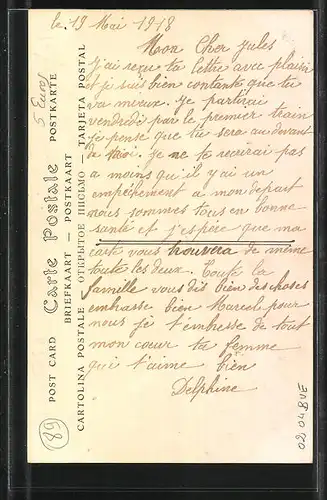 le 19 Mai 1918
Mon Cher Jules
J'ai reçu ta lettre avec plaisir
et je suis bien contante que tu
va mieux. Je partirai
vendredi par le premier train
je pense que tu sera au devant
de moi. Je ne te recrirai pas
a moins qu'il y'ai un
empêchement a mon depart
nous sommes tous en bonne
santé et j'espère que ma
carte vous trouvera de même
toute les deux. Toute la
famille vous dis bien des choses
embrasse bien Marcel pour
nous je t'embresse de tout
mon cœur ta femme
qui t'aime bien
Delphine
5 Euros
POST CARD Carte Postale POSTKARTE
BRIEFKAART — POSTKAART
CARTOLINA POSTALE — ОТКРЫТОЕ ПИСЬМО — TARJETA POSTAL
89
0204BVE